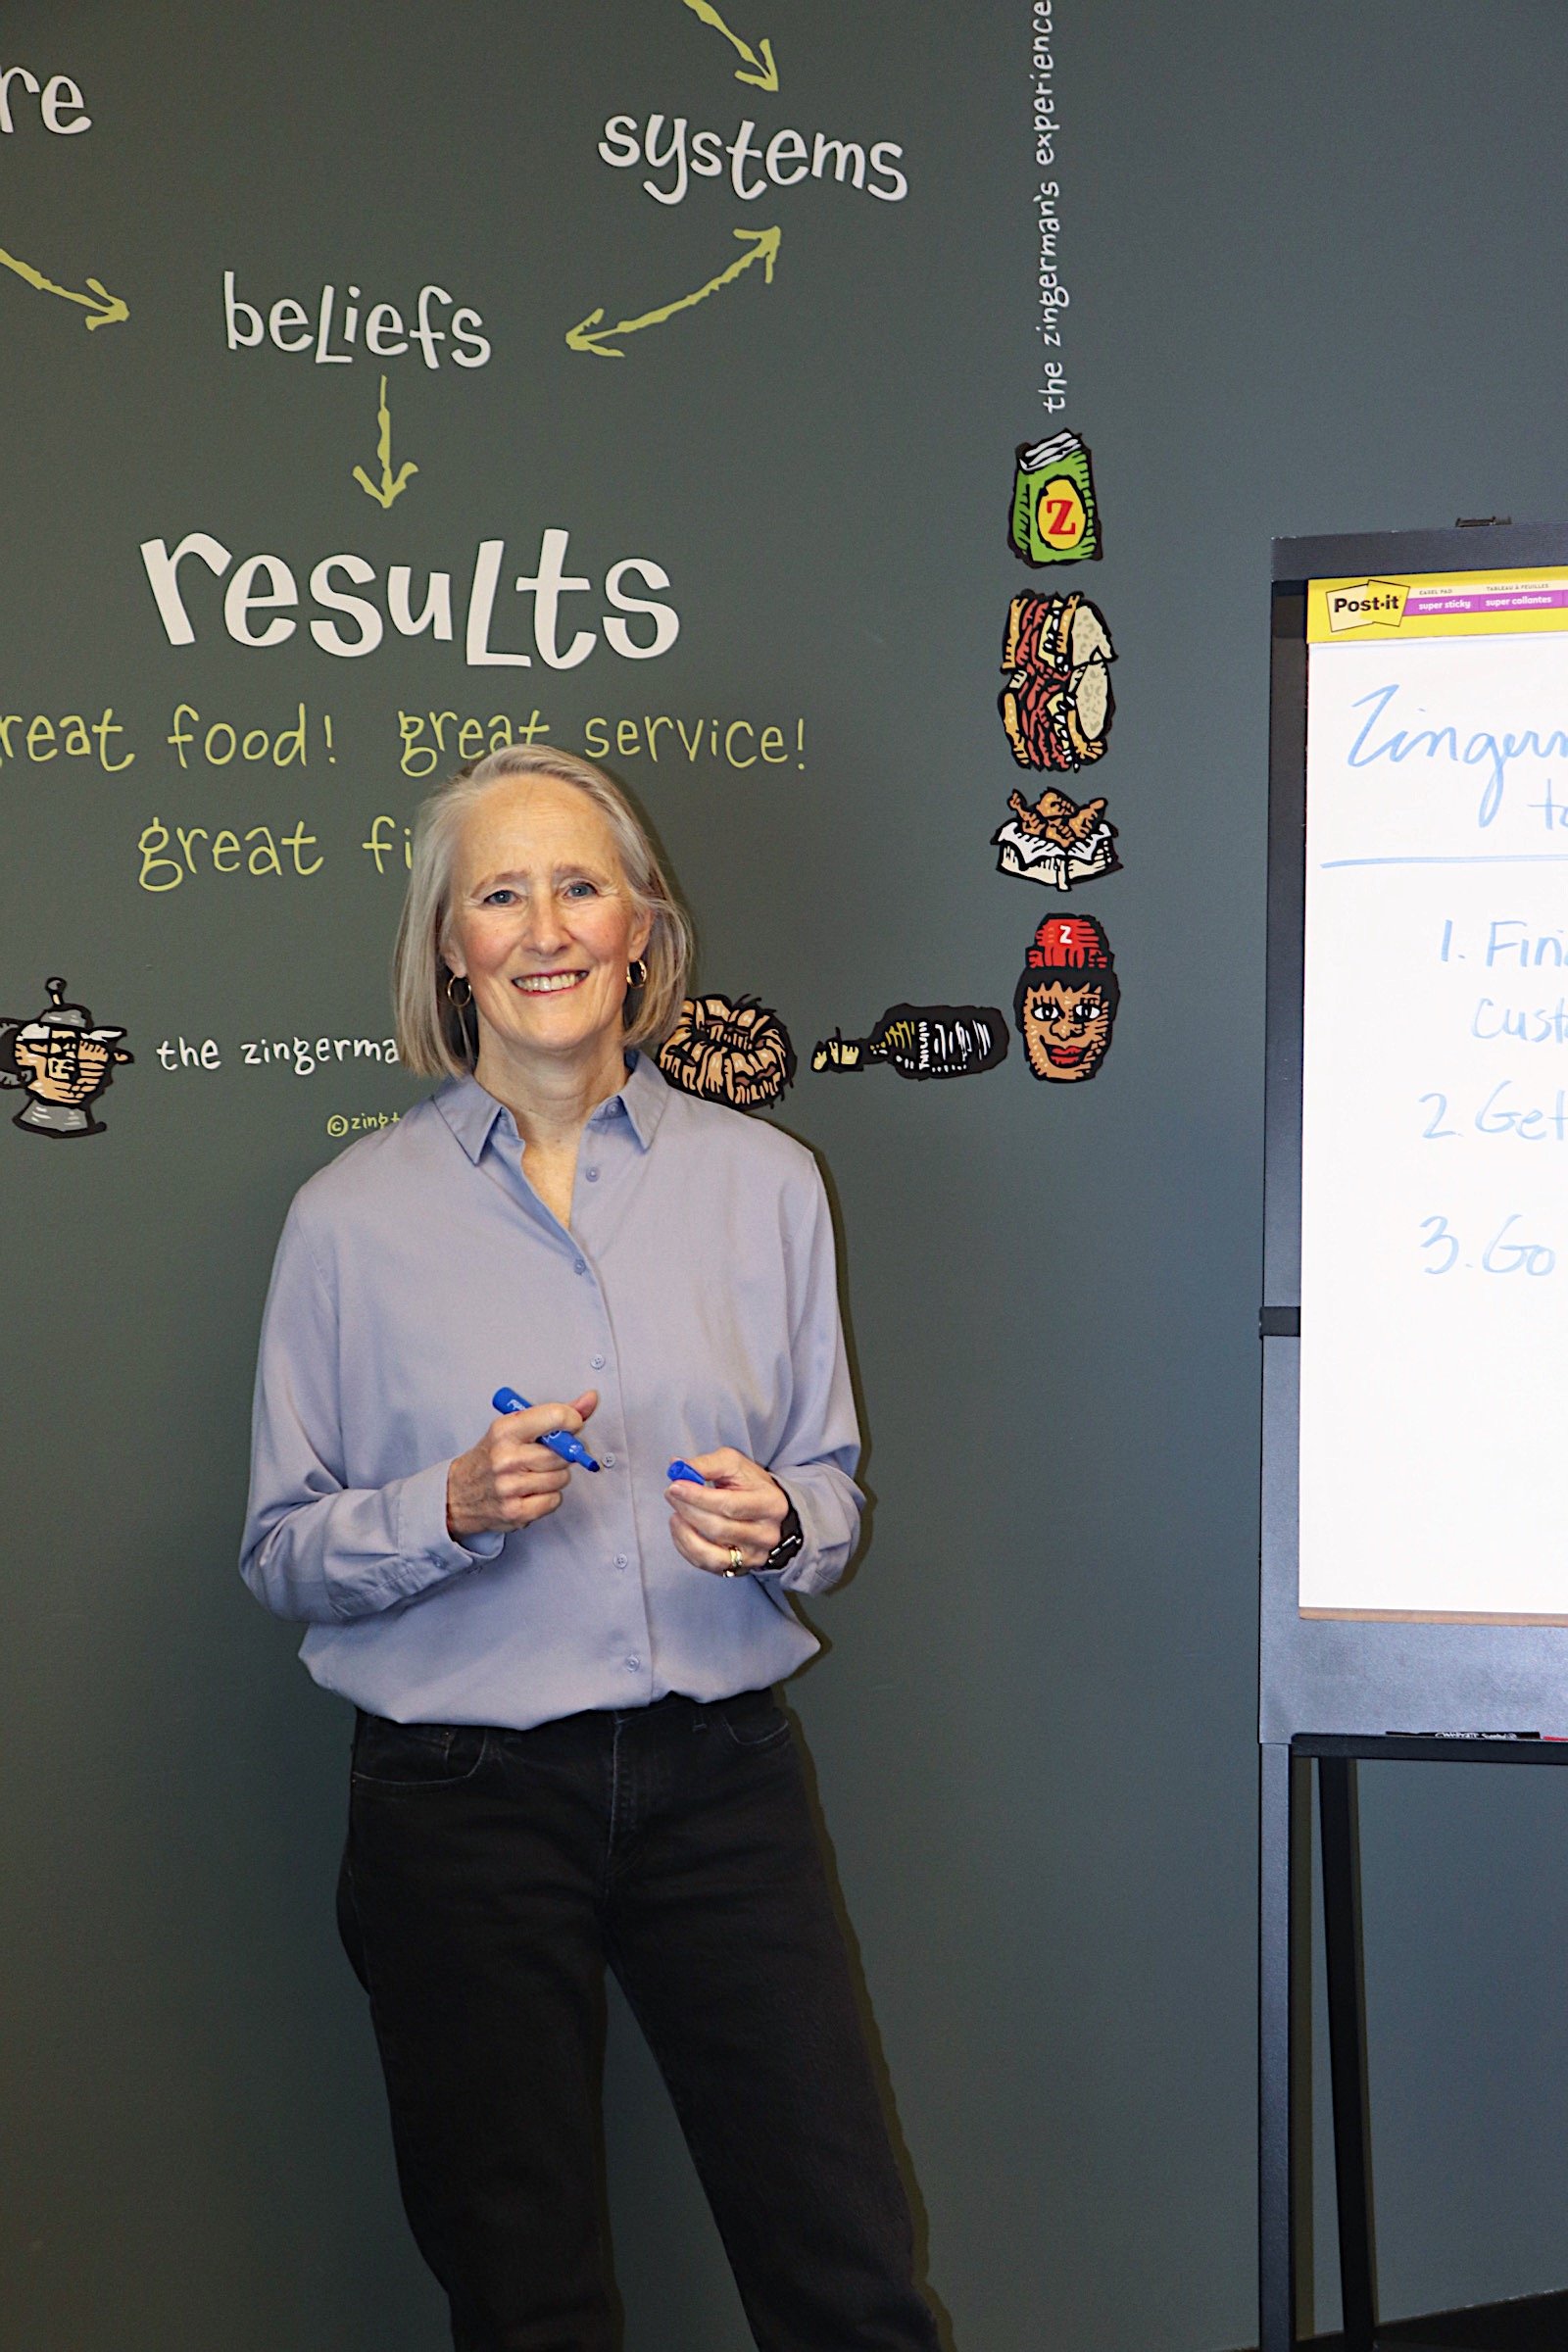 re
systems
the zingerman's experience
beliefs
results
reat food! great service!
great fi
Z
Z
the zingerma
©zingt
Post-it
EASEL PAD
super sticky
TABLEAU À FEUILLES
super collantes
Zingerm
to
1. Fin
cust
2. Get
3. Go